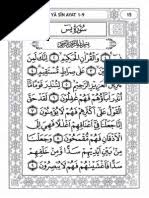 YĀ SĪN AYAT 1-9 15
سُورَةُ يس
بِسْمِ اللَّهِ الرَّحْمَٰنِ الرَّحِيمِ
يس ۝ وَالْقُرْآنِ الْحَكِيمِ ۝ إِنَّكَ لَمِنَ
الْمُرْسَلِينَ ۝ عَلَىٰ صِرَاطٍ مُسْتَقِيمٍ ۝
تَنْزِيلَ الْعَزِيزِ الرَّحِيمِ ۝ لِتُنْذِرَ قَوْمًا
مَا أُنْذِرَ آبَاؤُهُمْ فَهُمْ غَافِلُونَ ۝ لَقَدْ
حَقَّ الْقَوْلُ عَلَىٰ أَكْثَرِهِمْ فَهُمْ لَا يُؤْمِنُونَ ۝
إِنَّا جَعَلْنَا فِي أَعْنَاقِهِمْ أَغْلَالًا فَهِيَ إِلَى
الْأَذْقَانِ فَهُمْ مُقْمَحُونَ ۝ وَجَعَلْنَا مِنْ
بَيْنِ أَيْدِيهِمْ سَدًّا وَمِنْ خَلْفِهِمْ
سَدًّا فَأَغْشَيْنَاهُمْ فَهُمْ لَا يُبْصِرُونَ ۝